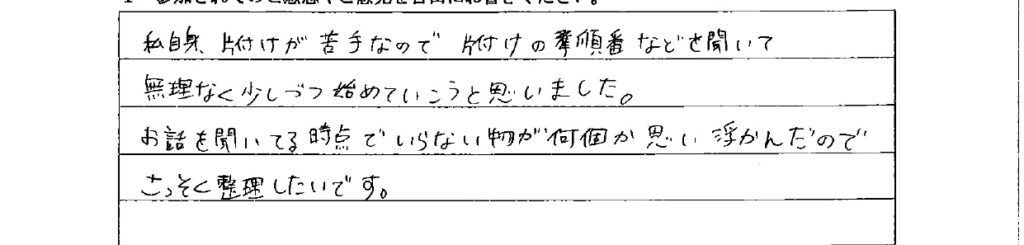 参加されてのご感想やご意見を自由にお書きください。
私自身、片付けが苦手なので 片付けの順番などを聞いて
無理なく少しづつ始めていこうと思いました。
お話を聞いてる時点でいらない物が何個か思い浮かんだので
さっそく整理したいです。